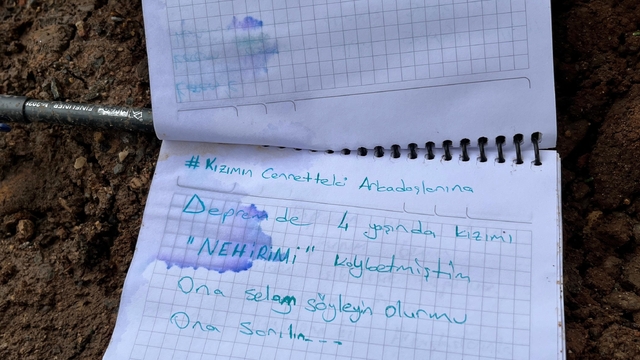 FINELINER
# Kızımın Cennetteki Arkadaşlarına
Depremde 4 yaşında kızımı
"NEHİRİMİ" kaybetmiştim
Ona selam söyleyin olurmu
Ona sarılın---